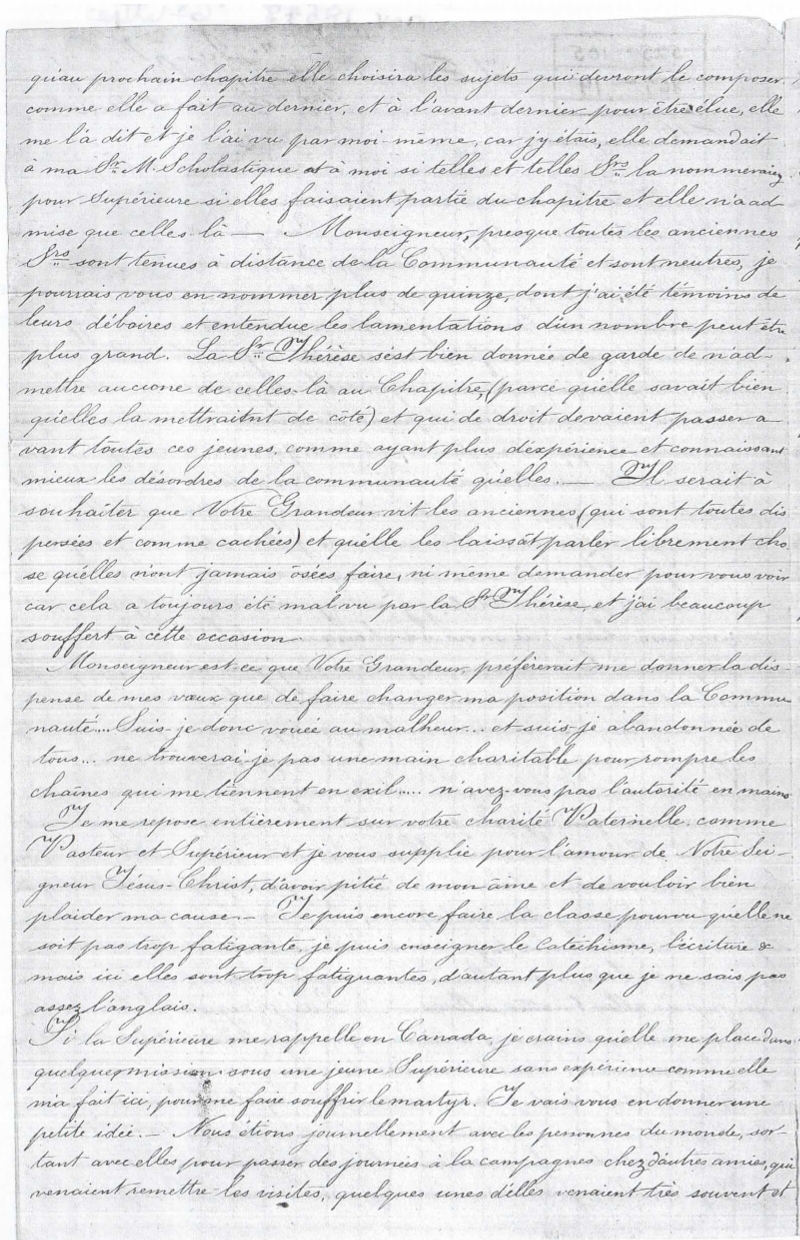 qu'au prochain chapitre elle choisira les sujets qui devront le composer
comme elle a fait au dernier, et à l'avant dernier pour être élue, elle
me l'a dit et je l'ai vu par moi-même, car j'y étais, elle demandait
à ma Sr. M. Scholastique et à moi si telles et telles Srs. la nommeraient
pour Supérieure si elles faisaient partie du chapitre et elle n'a ad
mise que celles-là — Monseigneur, presque toutes les anciennes
Srs. sont tenues à distance de la Communauté et sont neutres, je
pourrais vous en nommer plus de quinze, dont j'ai été témoins de
leurs déboires et entendue les lamentations d'un nombre peut être
plus grand. La Sr. Thérèse s'est bien donnée de garde de n'ad-
mettre aucune de celles-là au Chapitre, (parce qu'elle savait bien
qu'elles la mettraitnt de côté) et qui de droit devaient passer a
vant toutes ces jeunes, comme ayant plus d'expérience et connaissant
mieux les désordres de la communauté qu'elles. — Il serait à
souhaiter que Votre Grandeur vit les anciennes (qui sont toutes dis
persées et comme cachées) et qu'elle les laissât parler librement cho
se qu'elles n'ont jamais ôsées faire, ni même demander pour vous voir
car cela a toujours été mal vu par la Sr Thérèse, et j'ai beaucoup
souffert à cette occasion.
Monseigneur est-ce que Votre Grandeur, préfèrerait me donner la dis-
pense de mes vœux que de faire changer ma position dans la Commu
nauté... Suis-je donc vouée au malheur... et suis-je abandonnée de
tous... ne trouverai-je pas une main charitable pour rompre les
chaînes qui me tiennent en exil..... n'avez-vous pas l'autorité en mains
Je me repose entièrement sur votre charité Paternelle comme
Pasteur et Supérieur et je vous supplie pour l'amour de Notre Sei-
gneur Jésus-Christ, d'avoir pitié de mon âme et de vouloir bien
plaider ma cause. — Je puis encore faire la classe pourvu qu'elle ne
soit pas trop fatigante, je puis enseigner le Catéchisme, l'écriture &
mais ici elles sont trop fatiguantes, d'autant plus que je ne sais pas
assez l'anglais.
Si la Supérieure me rappelle en Canada, je crains qu'elle me place dans
quelques mission sous une jeune Supérieure sans expérience comme elle
m'a fait ici, pour me faire souffrir le martyr. Je vais vous en donner une
petite idée. — Nous étions journellement avec les personnes du monde, sor-
tant avec elles pour passer des journées à la campagnes chez d'autres amies, qui
venaient remettre les visites, quelques unes d'elles venaient très souvent et